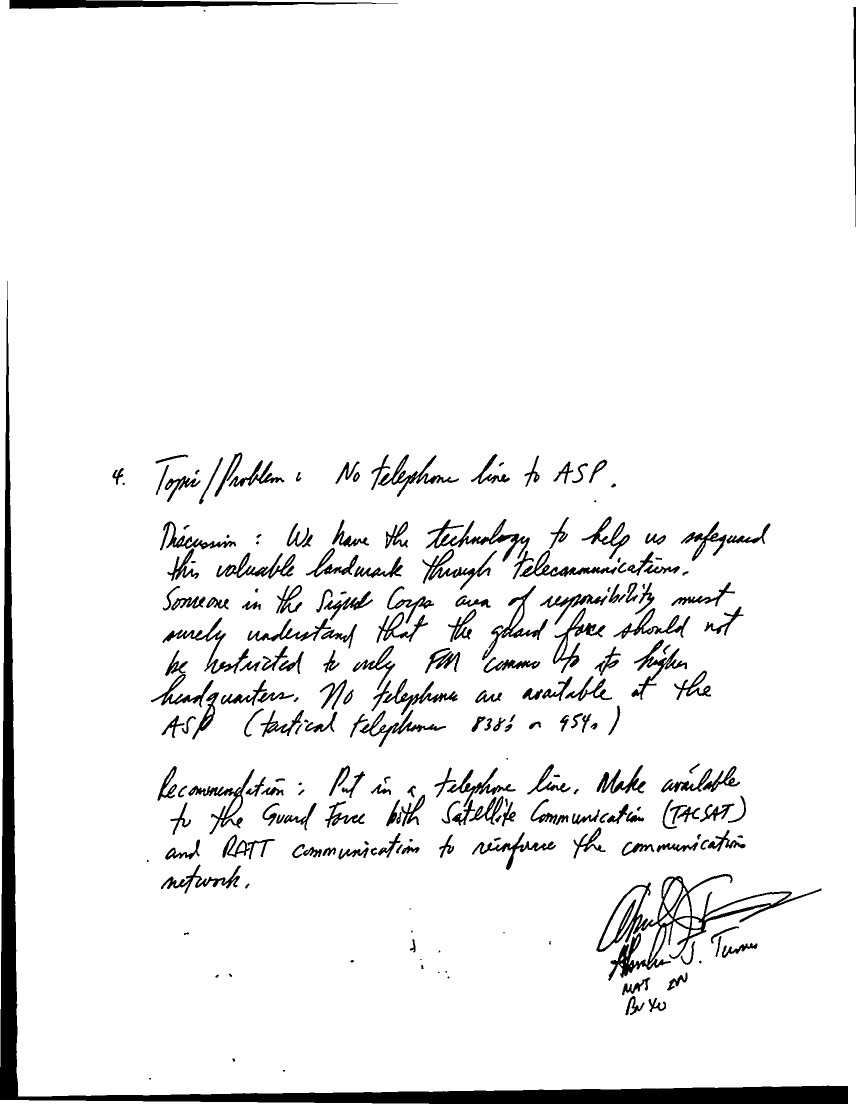 4. Topic/Problem : No telephone line to ASP.
Discussion : We have the technology to help us safeguard
this valuable landmark through telecommunications.
Someone in the Signal Corps area of responsibility must
surely understand that the guard force should not
be restricted to only FM commo to its higher
headquarters. No telephones are available at the
ASP (tactical telephones 838's or 954s)
Recommendation : Put in a telephone line. Make available
to the Guard Force both Satellite Communication (TACSAT)
and RATT communications to reinforce the communications
network.
Abraham J. Turner
MAJ IN
Bn XO